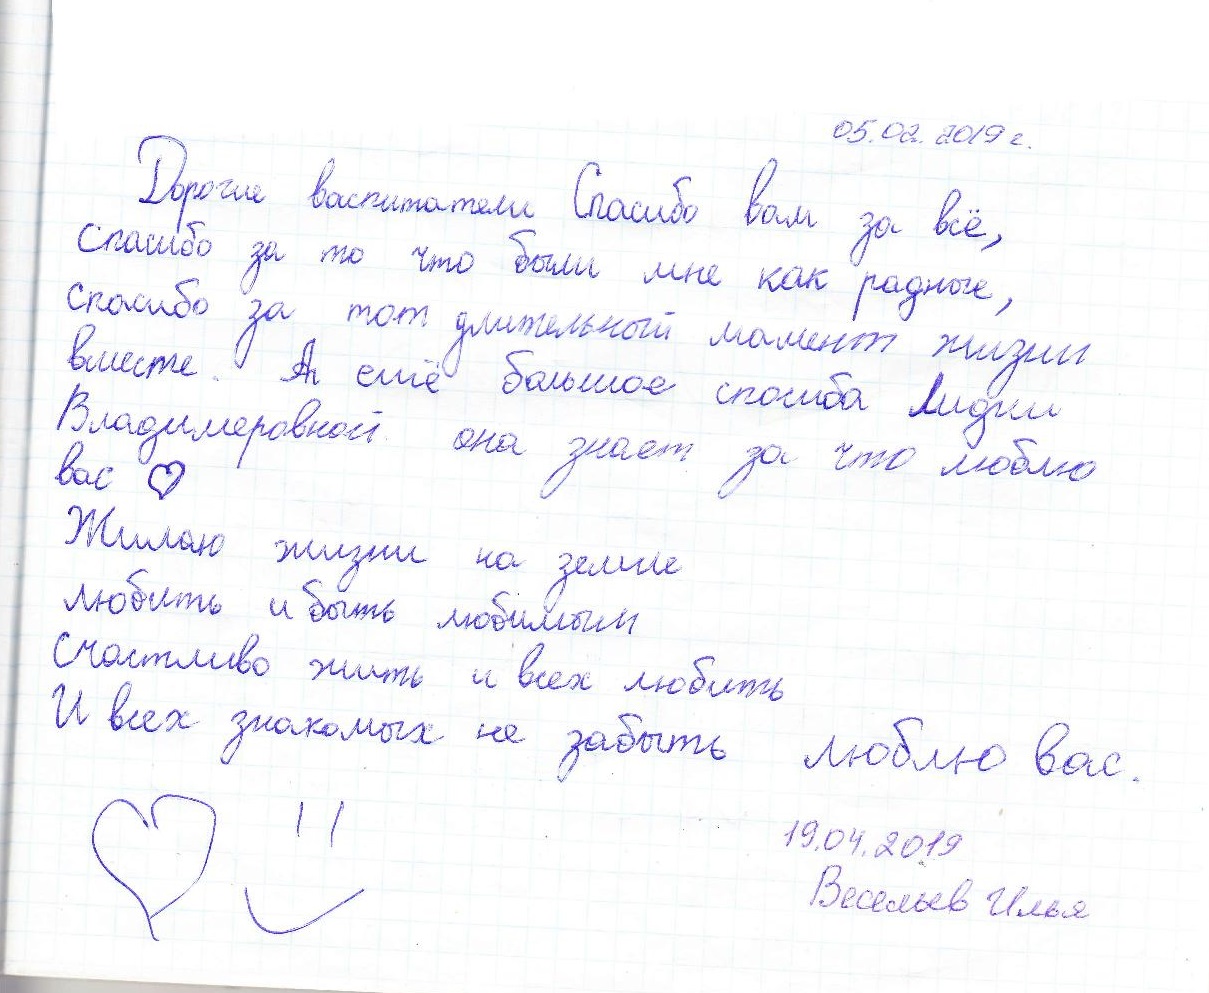 05.02.2019 г.
Дорогие васпитатели Спасибо вам за всё,
спасибо за то что были мне как радные,
спосибо за тот длительный мамент жизни
вместе. А ещё большое спосиба Лидии
Владимеровной. она знает за что люблю
вас ♡
Жилаю жизни на земле
любить и быть любимым
Счастливо жить и всех любить
И всех знакомых не забыть люблю вас.
19.04.2019
Весельев Илья